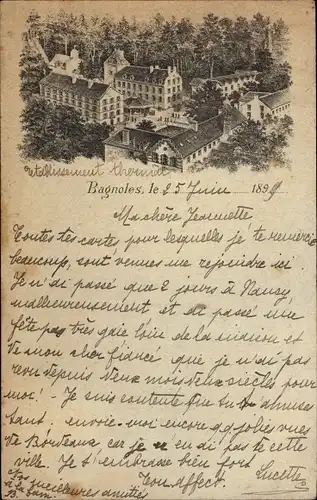 établissement thermal
Bagnoles, le 25 Juin 1899
Ma chère Jeannette
Toutes tes cartes, pour lesquelles je te remercie
beaucoup, sont venues me rejoindre ici
Je n'ai passé que 2 jours à Nancy,
malheureusement et ai passé une
fête pas très gaie loin de la maison et
de mon cher fiancé que je n'ai pas
revu depuis deux mois deux siècles pour
moi! Je suis contente que tu t'amuses
tant, envoie-moi encore qq jolies vues
de Bordeaux car je n'en ai pas de cette
ville. Je t'embrasse bien fort
Ton affect. Lucette
meilleures amitiés
à la